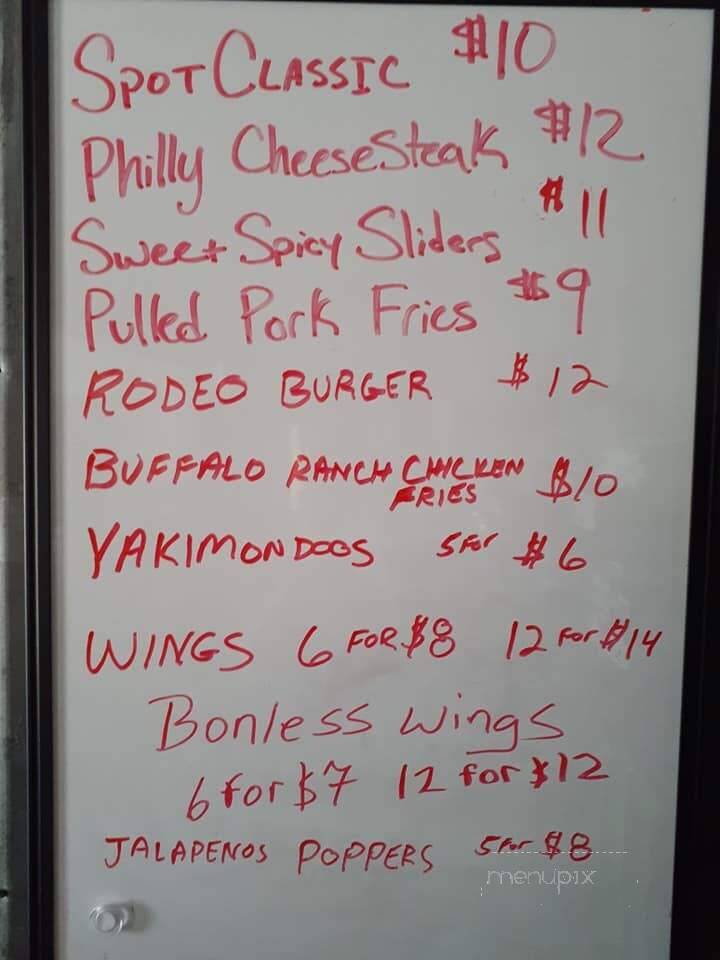 Spot Classic $10
Philly CheeseSteak $12
Sweet Spicy Sliders $11
Pulled Pork Fries $9
RODEO BURGER $12
BUFFALO RANCH CHICKEN FRIES $10
YAKIMONDOOS 5 FOR $6
WINGS 6 FOR $8 12 FOR $14
Bonless wings
6 for $7 12 for $12
JALAPENOS POPPERS 5 FOR $8
menupix